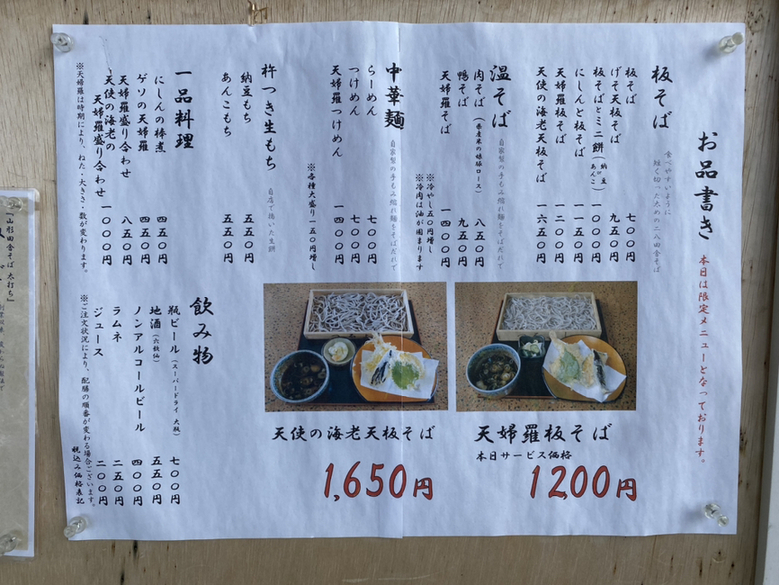 お品書き
本日は限定メニューとなっております。
板そば
食べやすいように
短く切った太めの二八田舎そば
板そば 七〇〇円
げそ天板そば 九五〇円
板そばとミニ餅(納豆 あんこ) 一〇〇〇円
にしんと板そば 一一五〇円
天婦羅板そば 一二〇〇円
天使の海老天板そば 一六五〇円
温そば
自家製の手もみ縮れ麺をそばだれで
肉そば 八五〇円
鴨そば 九五〇円
天婦羅そば 一四〇〇円
※冷やし五〇円増し
※冷肉は油が固まります
中華麺
自家製の手もみ縮れ麺をそばだれで
らーめん 七〇〇円
つけめん 七〇〇円
天婦羅つけめん 一四〇〇円
※各種大盛り一五〇円増し
杵つき生もち
自店で搗いた生餅
納豆もち 五五〇円
あんこもち 五五〇円
一品料理
にしんの棒煮 四五〇円
ゲソの天婦羅 四五〇円
天婦羅盛り合わせ 八五〇円
天使の海老の
天婦羅盛り合わせ 一〇〇〇円
※天婦羅は時期により、ねた・大きさ・数が変わります。
飲み物
瓶ビール(スーパードライ 大瓶) 七〇〇円
地酒(六歌仙) 五五〇円
ノンアルコールビール 四〇〇円
ラムネ 二五〇円
ジュース 二〇〇円
※ご注文状況により、配膳の順番が変わる場合ございます。
税込み価格表記
天使の海老天板そば
1,650円
天婦羅板そば
本日サービス価格
1200円
「山形田舎そば 太打ち」